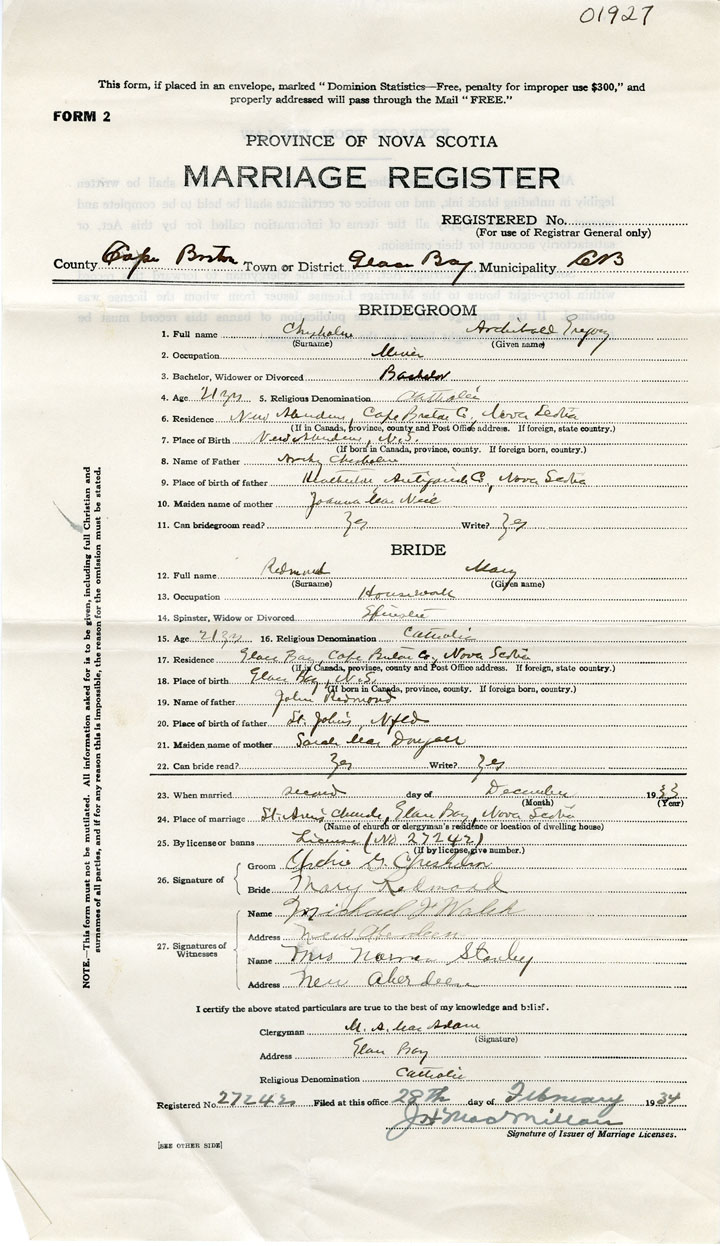 01927
This form, if placed in an envelope, marked "Dominion Statistics—Free, penalty for improper use $300," and
properly addressed will pass through the Mail "FREE."
FORM 2
PROVINCE OF NOVA SCOTIA
MARRIAGE REGISTER
REGISTERED No.
(For use of Registrar General only)
County Cape Breton Town or District Glace Bay Municipality CB
BRIDEGROOM
1. Full name Chisholm Archibald Gregory
(Surname) (Given name)
2. Occupation Miner
3. Bachelor, Widower or Divorced Bachelor
4. Age 21 yrs 5. Religious Denomination Catholic
6. Residence New Aberdeen, Cape Breton Co, Nova Scotia
(If in Canada, province, county and Post Office address. If foreign, state country.)
7. Place of Birth New Aberdeen, N.S.
(If born in Canada, province, county. If foreign born, country.)
8. Name of Father Archy Chisholm
9. Place of birth of father Antigonish Co, Nova Scotia
10. Maiden name of mother Joanna Mac Neil
11. Can bridegroom read? Yes Write? Yes
BRIDE
12. Full name Redmond Mary
(Surname) (Given name)
13. Occupation Housework
14. Spinster, Widow or Divorced Spinster
15. Age 21 yrs 16. Religious Denomination Catholic
17. Residence Glace Bay, Cape Breton Co, Nova Scotia
(If in Canada, province, county and Post Office address. If foreign, state country.)
18. Place of birth Glace Bay, N.S.
(If born in Canada, province, county. If foreign born, country.)
19. Name of father John Redmond
20. Place of birth of father St. John's, Nfld
21. Maiden name of mother Sarah Mac Dougall
22. Can bride read? Yes Write? Yes
23. When married second day of December 1933
(Month) (Year)
24. Place of marriage St. Anns Church, Glace Bay, Nova Scotia
(Name of church or clergyman's residence or location of dwelling house)
25. By license or banns License (No. 27242)
(If by license, give number.)
26. Signature of Groom Archie G. Chisholm
Bride Mary Redmond
27. Signatures of Witnesses
Name Michael J Walsh
Address New Aberdeen
Name Mrs Norman Stanley
Address New Aberdeen
I certify the above stated particulars are true to the best of my knowledge and belief.
Clergyman M. A. Mac Adam
(Signature)
Address Glace Bay
Religious Denomination Catholic
Registered No. 27242 Filed at this office 28th day of February 1934
J H MacMillan
Signature of Issuer of Marriage Licenses.
[SEE OTHER SIDE]
NOTE.—This form must not be mutilated. All information asked for is to be given, including full Christian and
surnames of all parties, and if for any reason this is impossible, the reason for the omission must be stated.